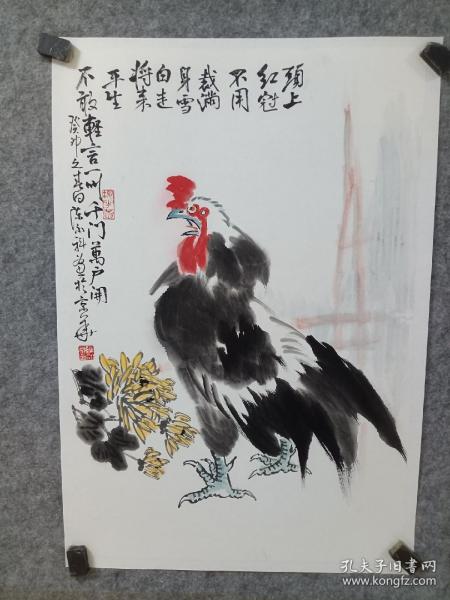 頭上
紅冠
不用
裁满
身雪
白走
将来
平生
不敢輕言一叫千门萬户開
癸卯之春日陈永科画於京華
孔夫子旧书网
www.kongfz.com